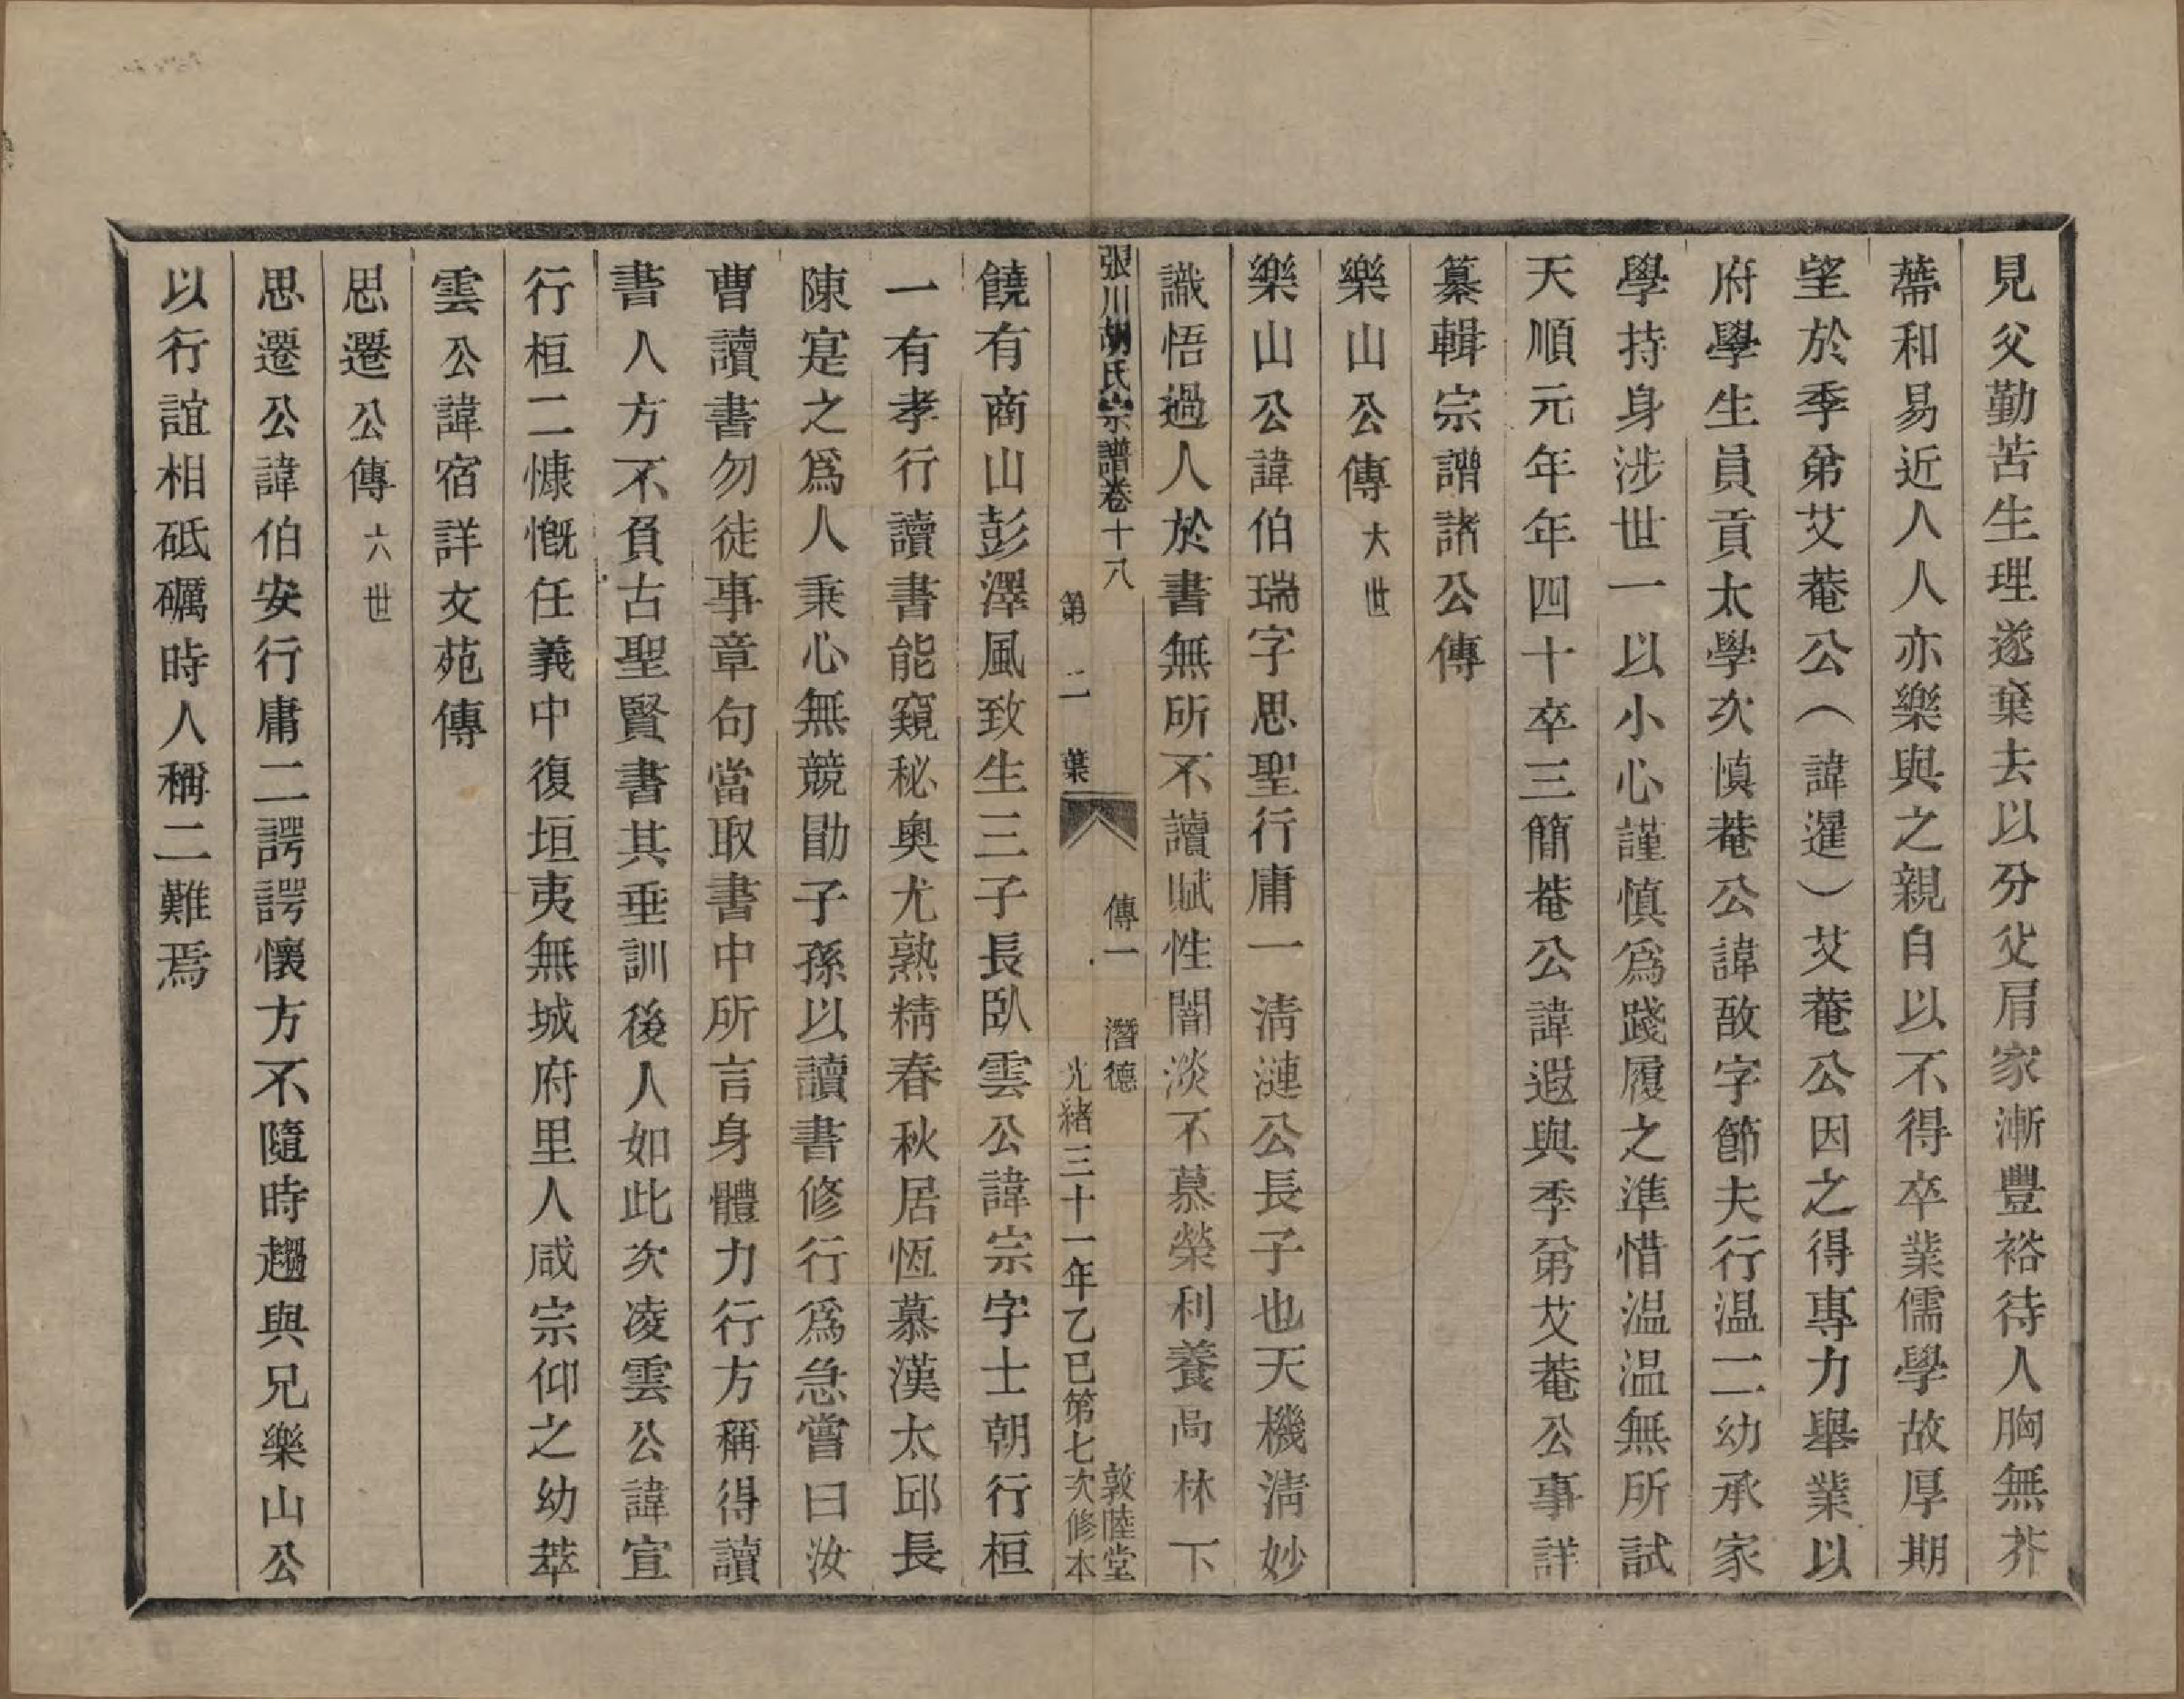 見父勤苦生理遂棄去以分父肩家漸豐裕待人胸無芥
蔕和易近人人亦樂與之親自以不得卒業儒學故厚期
望於季弟艾菴公（諱暹）艾菴公因之得專力舉業以
府學生員貢太學次慎菴公諱敔字節夫行温二幼承家
學持身涉世一以小心謹慎爲踐履之準惜温温無所試
天順元年年四十卒三簡菴公諱遐與季弟艾菴公事詳
纂輯宗譜諸公傳
樂山公傳 大世
樂山公諱伯瑞字思聖行庸一清漣公長子也天機淸妙
識悟過人於書無所不讀賦性闇淡不慕榮利養咼林下
張川胡氏宗譜卷十八 傳一 潛德 敦睦堂
第二葉 光緒三十一年乙巳第七次修本
饒有商山彭澤風致生三子長臥雲公諱宗字士朝行桓
一有孝行讀書能窺秘奥尤熟精春秋居恆慕漢太邱長
陳寔之爲人秉心無競勖子孫以讀書修行爲急嘗曰汝
曹讀書勿徒事章句當取書中所言身體力行方稱得讀
書人方不負古聖賢書其垂訓後人如此次凌雲公諱宣
行桓二慷慨任義中復垣夷無城府里人咸宗仰之幼萃
雲公諱宿詳文苑傳
思遷公傳 六世
思遷公諱伯安行庸二諤諤懷方不隨時趨與兄樂山公
以行誼相砥礪時人稱二難焉